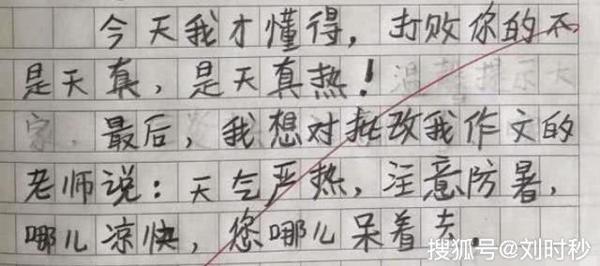 今天我才懂得，打败你的不
是天真，是天真热！
最后，我想对批改我作文的
老师说：天气严热，注意防暑，
哪儿凉快，您哪儿呆着去。
搜狐号@刘时秒